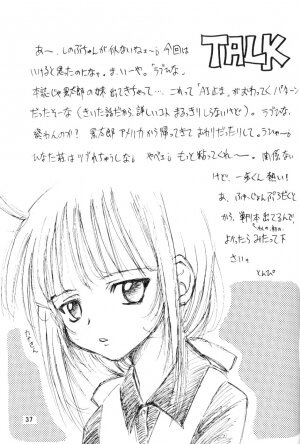 TALK
あ〜、しのぶちゃんが似ないなぁ〜；今回は
いけると思ったのになァ。ま、いーや。「ラブひな」
本誌じゃ景太郎の妹出てきちゃって…これって「A・Iとま」が
だったそーな(きいた話だから詳しいコトまるっきりしらないけど)。ラブひな、
終わんのか？景太郎アメリカから帰ってきてまわりだったりして。ラひゃ〜；
ひなた荘はツブれちゃうしな；やべェ；もっと粘ってくれ〜。関係ない
けど、一歩くん熱い！
あ、ふゅーじょんぷろだくと
から、単行本出てるんで、
よかったらみたって下
さいっ。
とんぴ
37